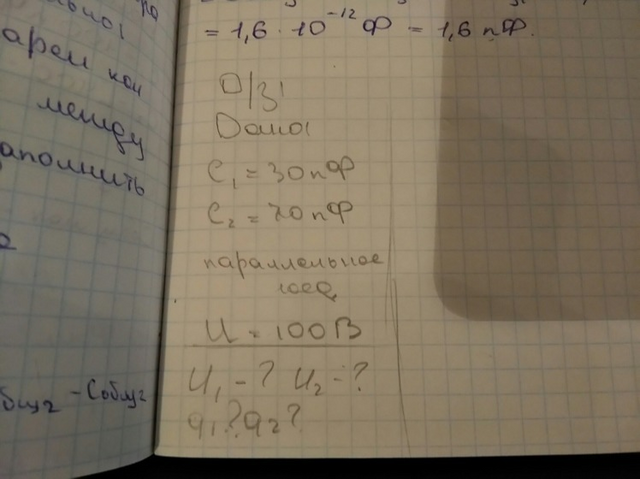 арем кон
между
аполнить
общ2 - Cобщ2
= 1,6 · 10⁻¹² Ф = 1,6 пФ.
Д/з!
Дано:
C₁ = 30 пФ
C₂ = 70 пФ
параллельное
соед
U = 100 В
U₁ - ? U₂ - ?
q₁? q₂?